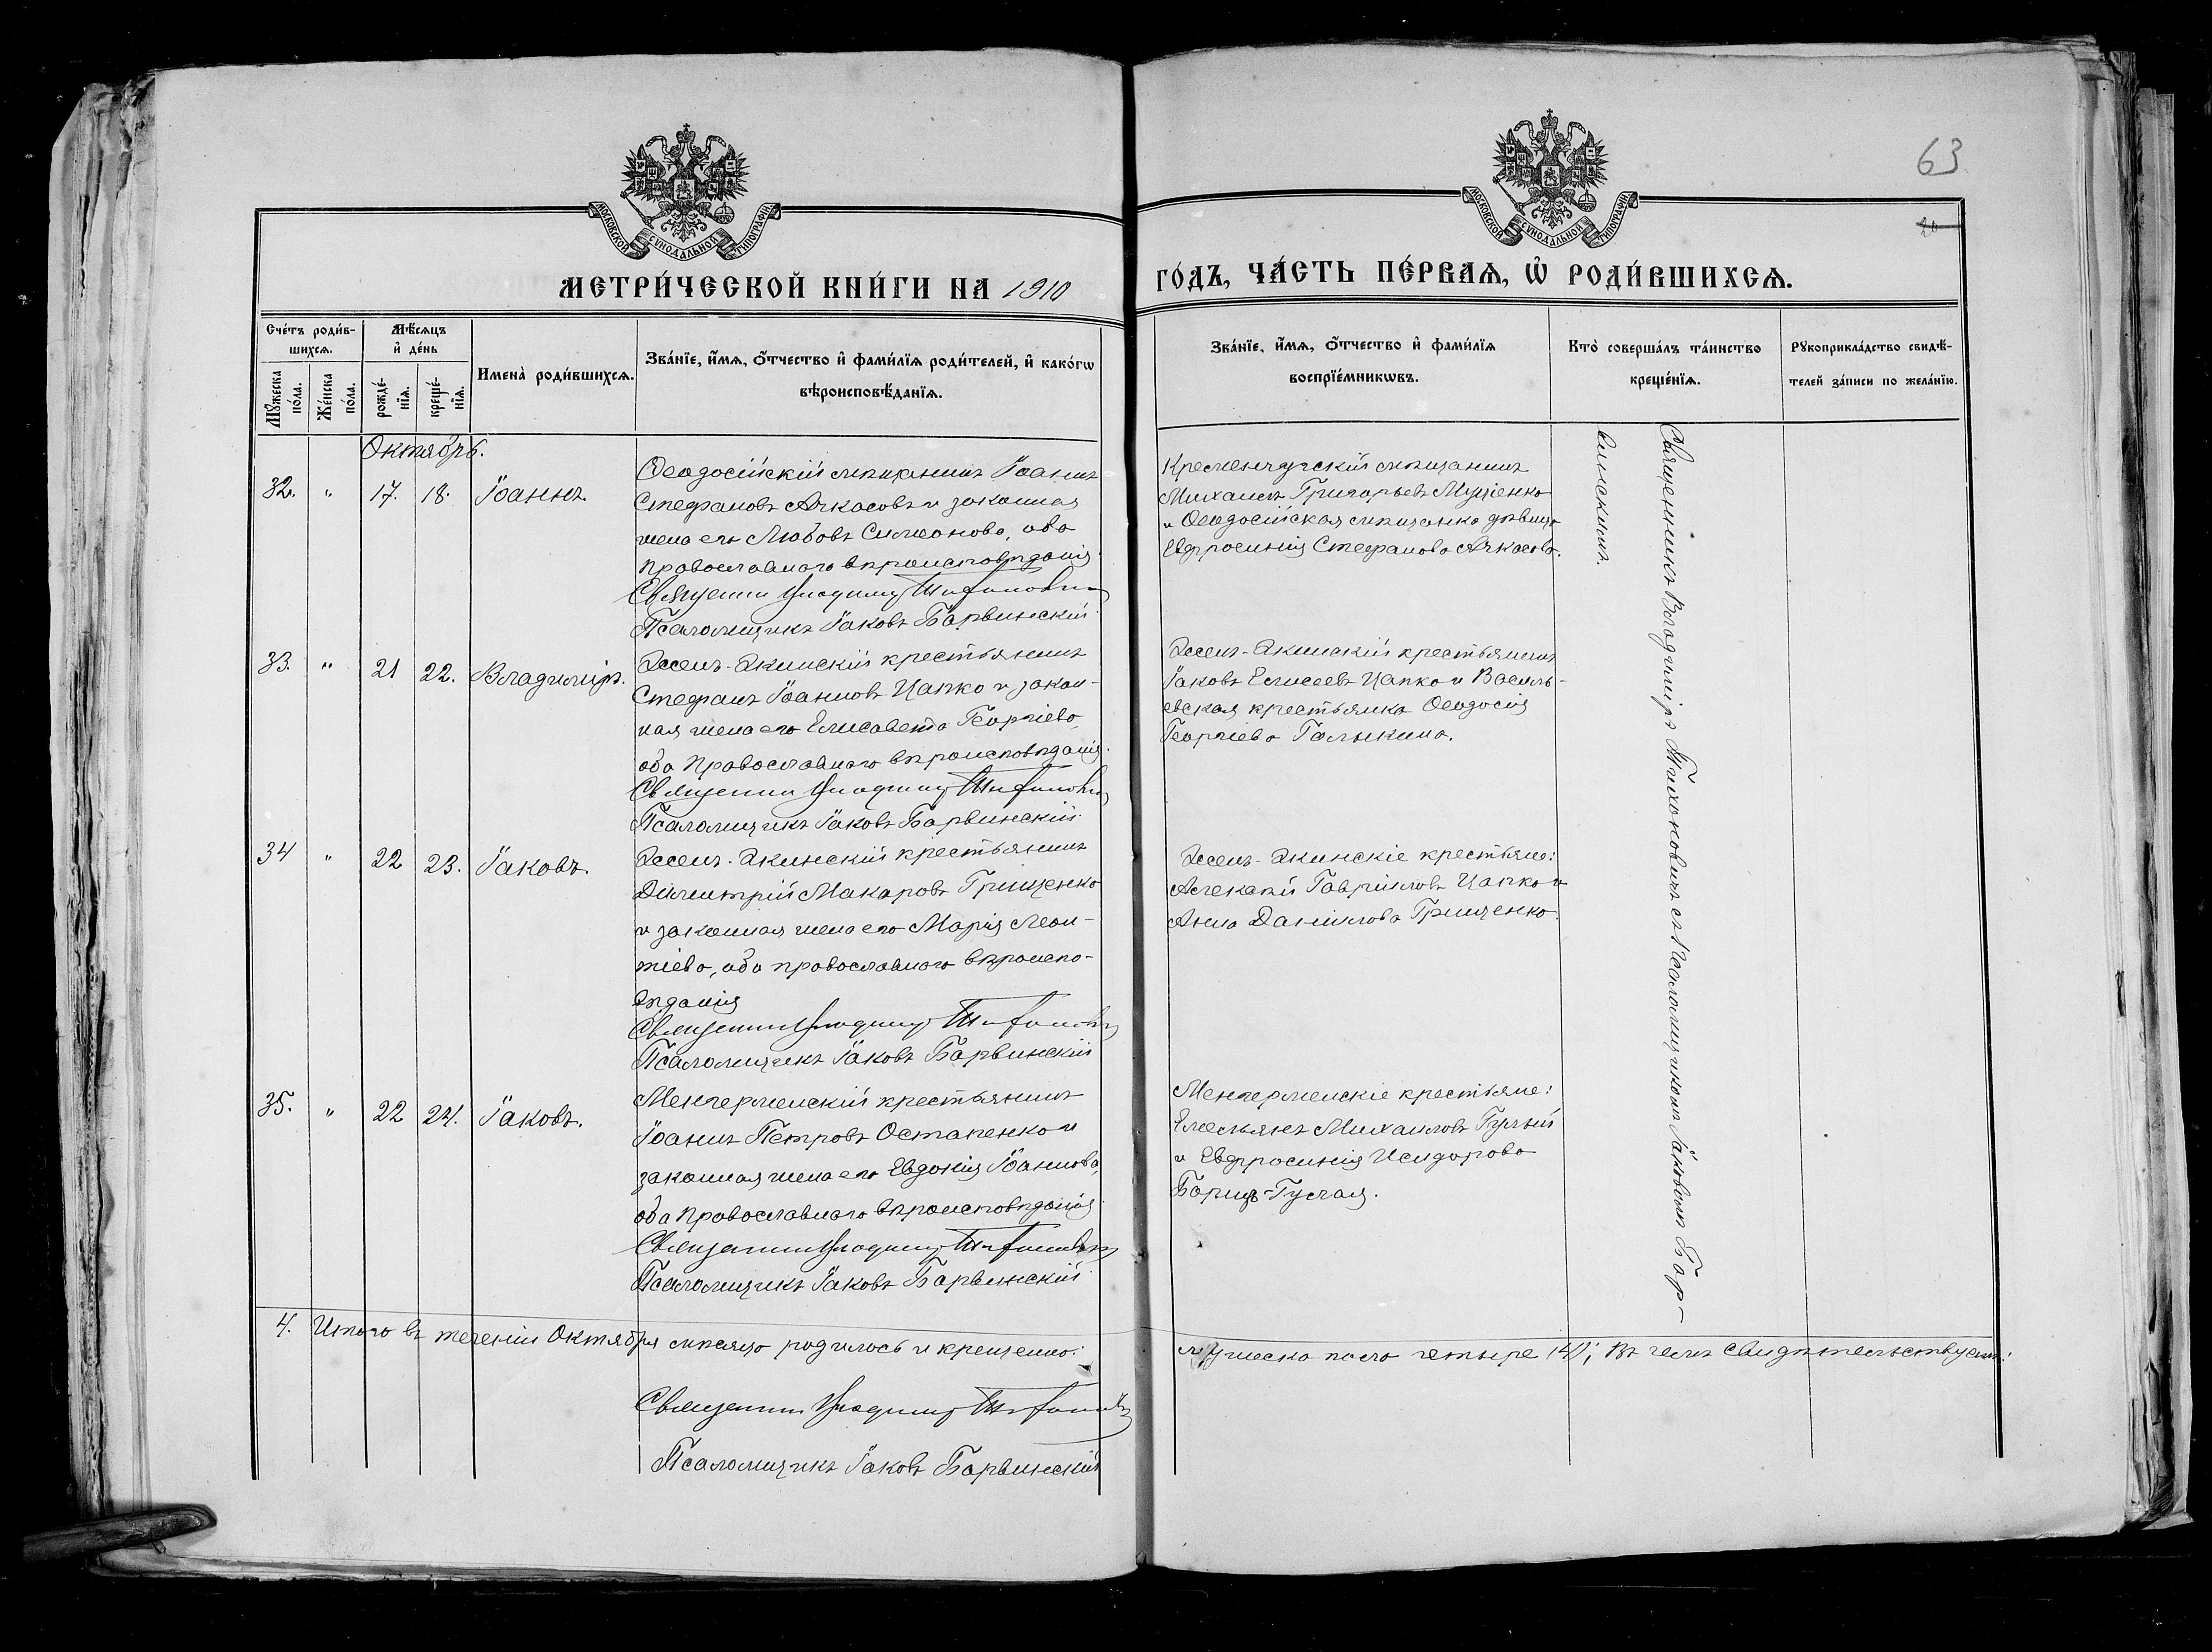 63
20
МОСКОВСКОЙ СѴНОДАЛЬНОЙ ТИПОГРАФІИ
МОСКОВСКОЙ СѴНОДАЛЬНОЙ ТИПОГРАФІИ
МЕТРИ́ЧЕСКОЙ КНИ́ГИ НА 1910
ГО́ДЪ, ЧА́СТЬ ПЕ́РВАѦ, Ѡ҆ РОДИ́ВШИХСѦ.
Сче́тъ роди́в-
шихсѧ.
Мꙋ́жеска по́ла.
Же́нска по́ла.
Мѣ́сѧцъ
и҆ де́нь
рожде́-
нїѧ.
креще́-
нїѧ.
Имена̀ роди́вшихсѧ.
Зва́нїе, и҆́мѧ, ѻ҆́тчество и҆ фами́лїѧ роди́телей, и҆ како́гѡ
вѣроисповѣ́данїѧ.
Зва́нїе, и҆́мѧ, ѻ҆́тчество и҆ фами́лїѧ
воспрїе́мникѡвъ.
Кто̀ соверша́лъ та́инство
креще́нїѧ.
Рꙋкоприкла́дство свидѣ́-
телей за́писи по жела́нїю.
Октябрь.
32. " 17. 18. Іоаннъ.
Ѳеодосійскій мѣщанинъ Іоаннъ
Стефановъ Ачкасовъ и законная
жена его Любовь Симеонова, оба
православнаго вѣроисповѣданія
Священникъ Владиміръ Тихоновичъ
Псаломщикъ Іаковъ Барвинскій
Кременчугскій мѣщанинъ
Михаилъ Григорьевъ Мущенко
и Ѳеодосійская мѣщанка дѣвица
Евфросинія Стефанова Ачкасова.
33. " 21 22. Владиміръ.
Джен-Акинскій крестьянинъ
Стефанъ Іоанновъ Цапко и закон-
ная жена его Елисавета Георгіева,
оба православнаго вѣроисповѣданія.
Священникъ Владиміръ Тихоновичъ
Псаломщикъ Іаковъ Барвинскій
Іаковъ Елисеевъ Цапко и Василь-
евская крестьянка Ѳеодосія
Георгіева Галыкина.
34 " 22 23. Іаковъ.
Димитрій Макаровъ Грищенко
и законная жена его Марія Леон-
тіева, оба православнаго вѣроиспо-
вѣданія
Священникъ Владиміръ Тихоновичъ
Псаломщикъ Іаковъ Барвинскій
Гавріиловъ Цапко и
Анна Даніилова Грищенко.
35. " 22 24. Іаковъ.
Менгерменскій крестьянинъ
Іоаннъ Петровъ Остапенко и
законная жена его Евдокія Іоаннова,
оба православнаго вѣроисповѣданія
Священникъ Владиміръ Тихоновичъ
Псаломщикъ Іаковъ Барвинскій
Менгерменскіе крестьяне:
Емельянъ Михаиловъ Гуслый
и Евфросинія Исидорова
Гуслая.
Священникъ Владиміръ Тихоновичъ съ псаломщикомъ Іаковомъ Бар-
винскимъ.
4. Итого въ теченіи Октября мѣсяца родилось и крещено:
мужеска пола четыре (4); въ чемъ свидѣтельствуемъ:
Священникъ Владиміръ Тихоновичъ
Псаломщикъ Іаковъ Барвинскій